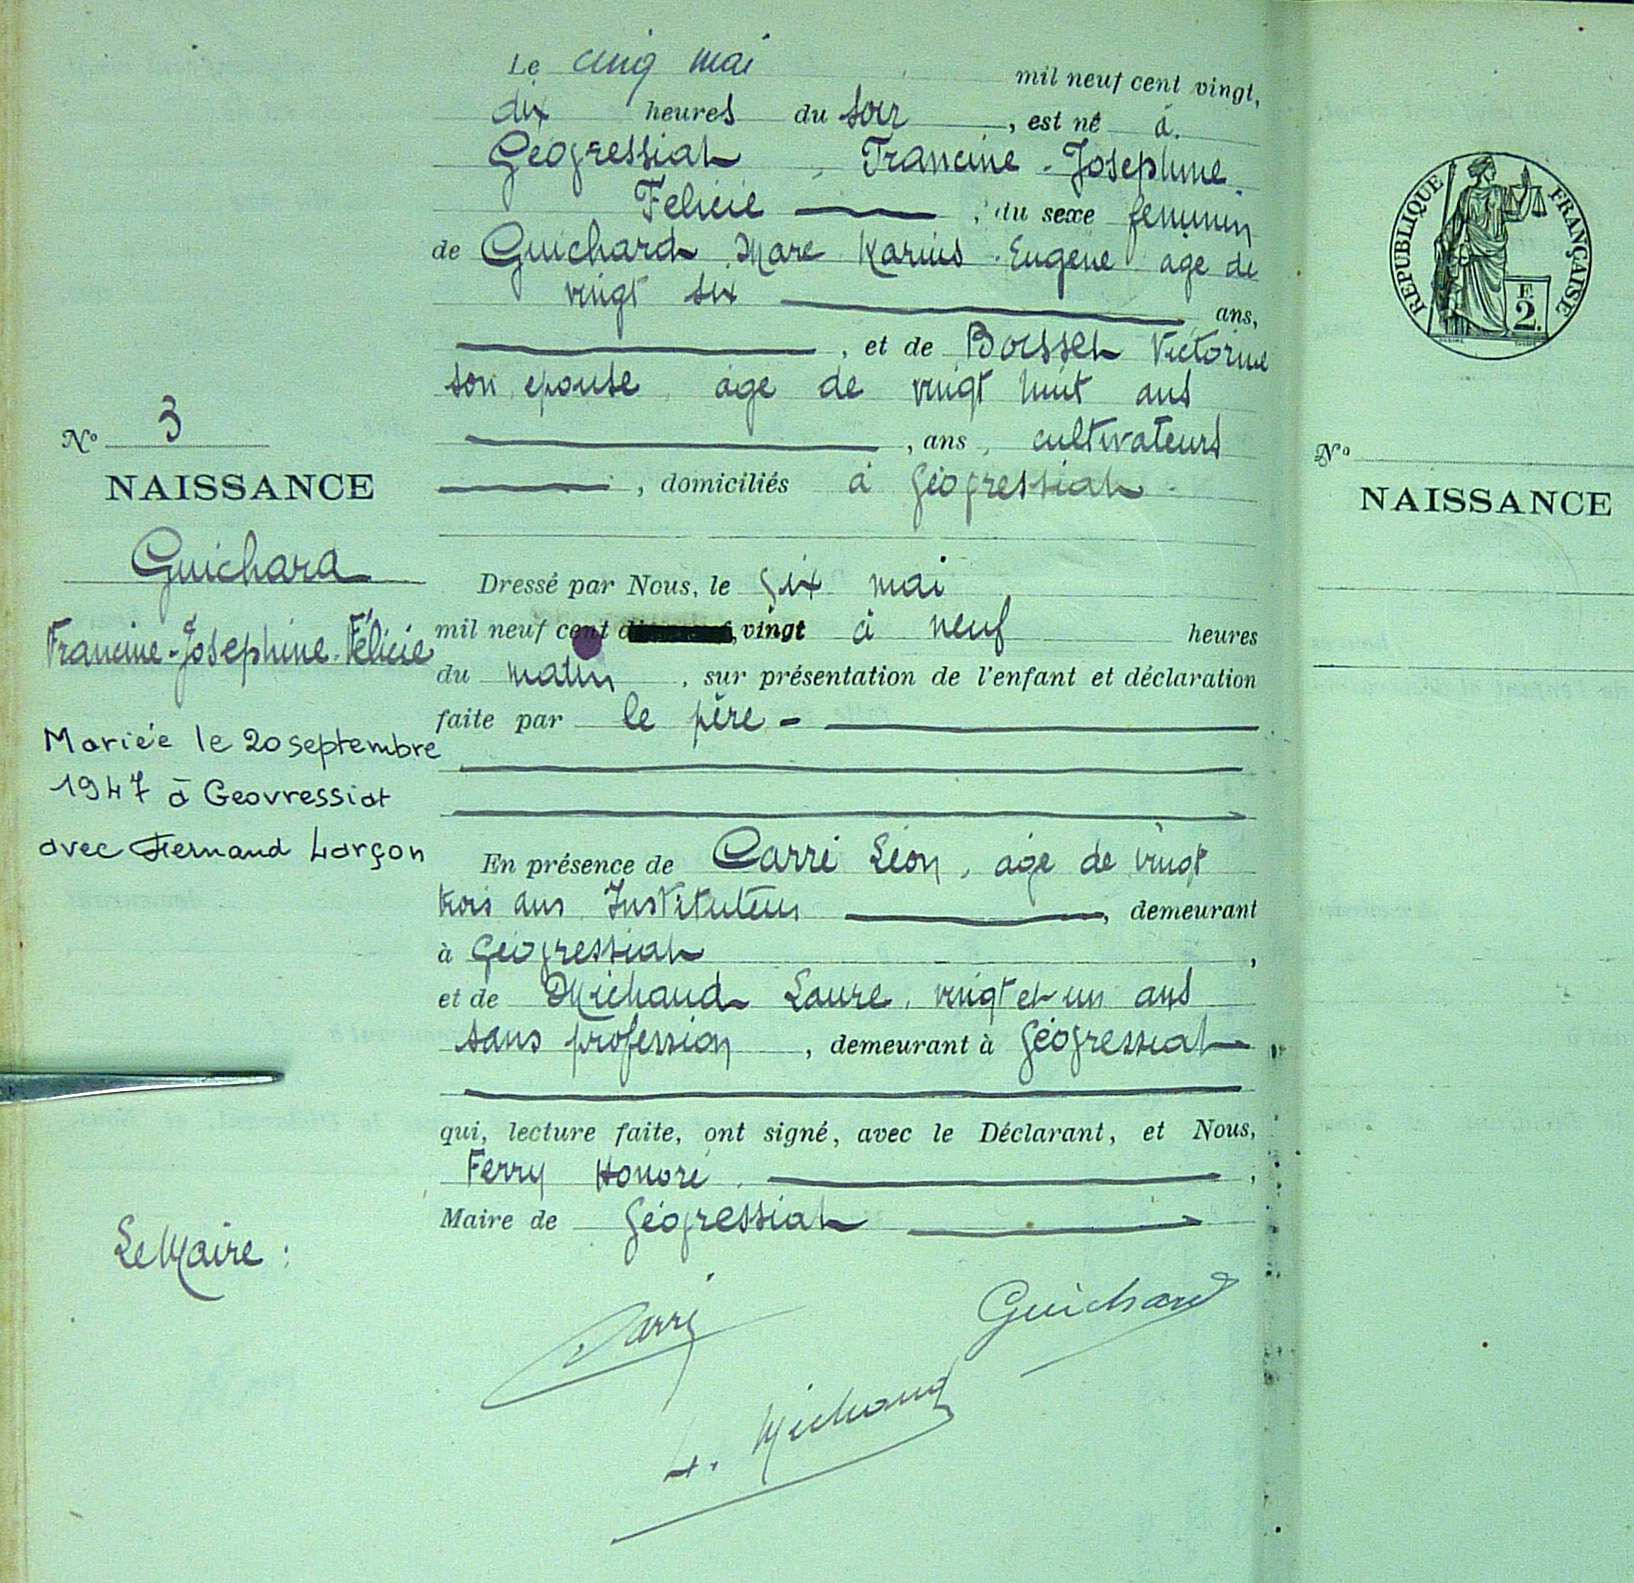 Le cinq mai mil neuf cent vingt,
dix heures du soir, est né à
Géogressiat, Francine-Josephine
Felicie, du sexe feminin
de Guichard Marc Marius Eugène age de
vingt six ans,
, et de Boisset Victorine
son epouse age de vingt huit ans
, ans, cultivateurs
, domiciliés à Géogressiat
Nº 3
NAISSANCE
Guichard
Francine-Josephine-Félicie
Mariée le 20 septembre
1947 à Geovressiat
avec Fernand Larçon
Dressé par Nous, le six mai
mil neuf cent vingt à neuf heures
du matin, sur présentation de l'enfant et déclaration
faite par le père -
En présence de Carré Léon, age de vingt
trois ans Instituteur, demeurant
à Géogressiat,
et de Michaud Laure, vingt et un ans
sans profession, demeurant à Géogressiat
qui, lecture faite, ont signé, avec le Déclarant, et Nous,
Ferry Honoré,
Maire de Géogressiat
Le Maire :
Carré
Guichard
L. Michaud
REPUBLIQUE FRANÇAISE
2
F.
Nº
NAISSANCE